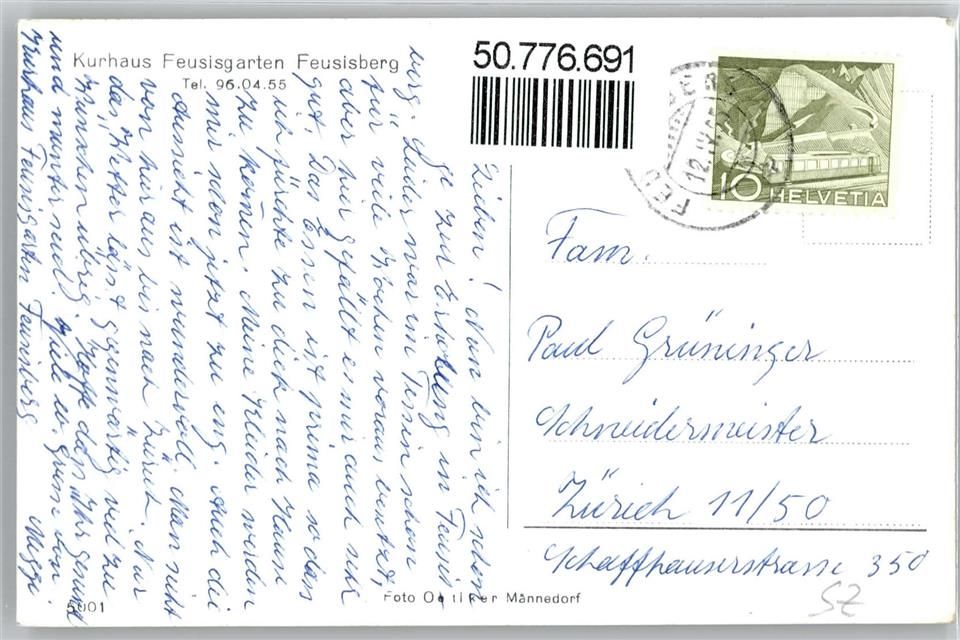 Kurhaus Feusisgarten Feusisberg
Tel. 96.04.55
50.776.691
12.IV.
10 HELVETIA
Lieben! Nun bin ich schon
ge zur Erholung in Feusis-
berg. Leider war im Tessin schon
für viele Wochen voraus besetzt,
aber hier gefällt es mir auch sehr
gut. Das Essen ist prima so dass
ich fürchte zu dick nach Hause
zu kommen. Meine Kleider werden
mir schon jetzt zu eng. Auch die
Aussicht ist wundervoll. Man sieht
von hier aus bis nach Zürich. Nur
das Wetter lässt gegenwärtig viel zu
wünschen übrig. Hoffe dass Ihr gesund
und munter seid. Viele lb. Grüsse von
Kurhaus Feusisgarten Feusisberg
Fam.
Paul Grüninger
Schneidermeister
Zürich 11/50
Schaffhauserstrasse 350
5001
Foto Oetiker Männedorf
SZ